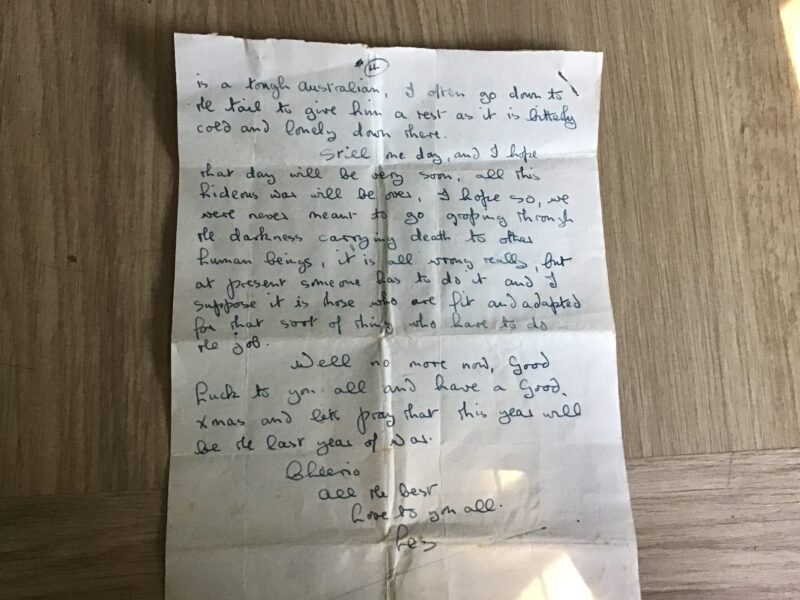 4
is a tough Australian, I often go down to
the tail to give him a rest as it is bitterly
cold and lonely down there.
Still one day, and I hope
that day will be very soon, all this
hideous war will be over, I hope so, we
were never meant to go groping through
the darkness carrying death to other
human beings, it is all wrong really, but
at present someone has to do it and I
suppose it is those who are fit and adapted
for that sort of thing who have to do
the job.
Well no more now, Good
Luck to you all and have a Good.
Xmas and lets pray that this year will
be the last year of war.
Cheerio
All the best
Love to you all.
Les